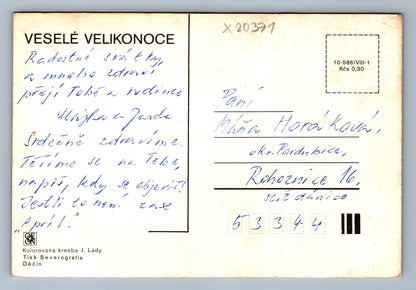 VESELÉ VELIKONOCE
Radostné svátky,
a mnoho zdraví
přejí Tobě a rodince
a Jarda
Srdečně zdravíme.
Těšíme se na Tebe,
napiš, kdy se objevíš!
Jestli to není zase
"Apríl."
Kolorovaná kresba J. Lady
Tisk Severografia
Děčín
X 20371
10-586/VIII-1
Kčs 0,30
Paní
Máňa Horáková,
okr. Pardubice,
Rohoznice 16,
53344